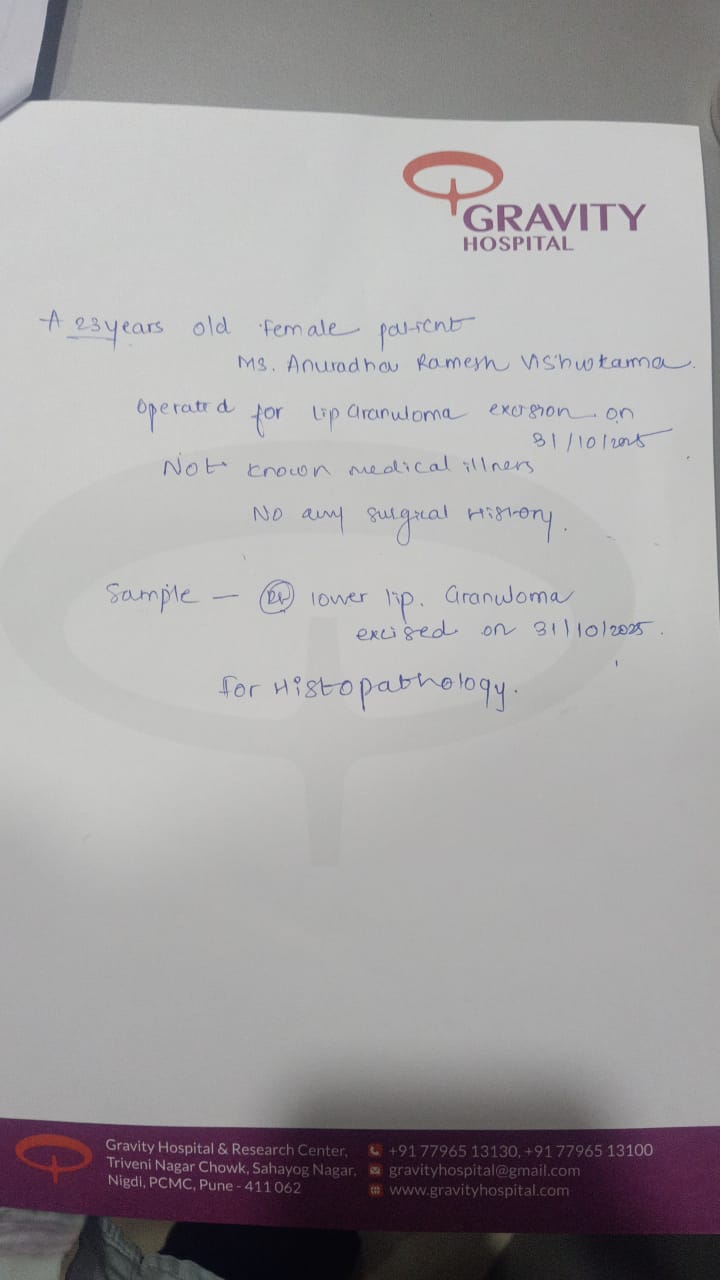 GRAVITY
HOSPITAL
A 23 years old female patient
Ms. Anuradha Ramesh Vishwkarma.
Operated for Lip Granuloma excision on
31/10/2025
Not known medical illness
No any surgical History.
Sample – Rt lower lip. Granuloma
excised on 31/10/2025.
for Histopathology.
Gravity Hospital & Research Center,
Triveni Nagar Chowk, Sahayog Nagar,
Nigdi, PCMC, Pune - 411 062
+91 77965 13130, +91 77965 13100
gravityhospital@gmail.com
www.gravityhospital.com